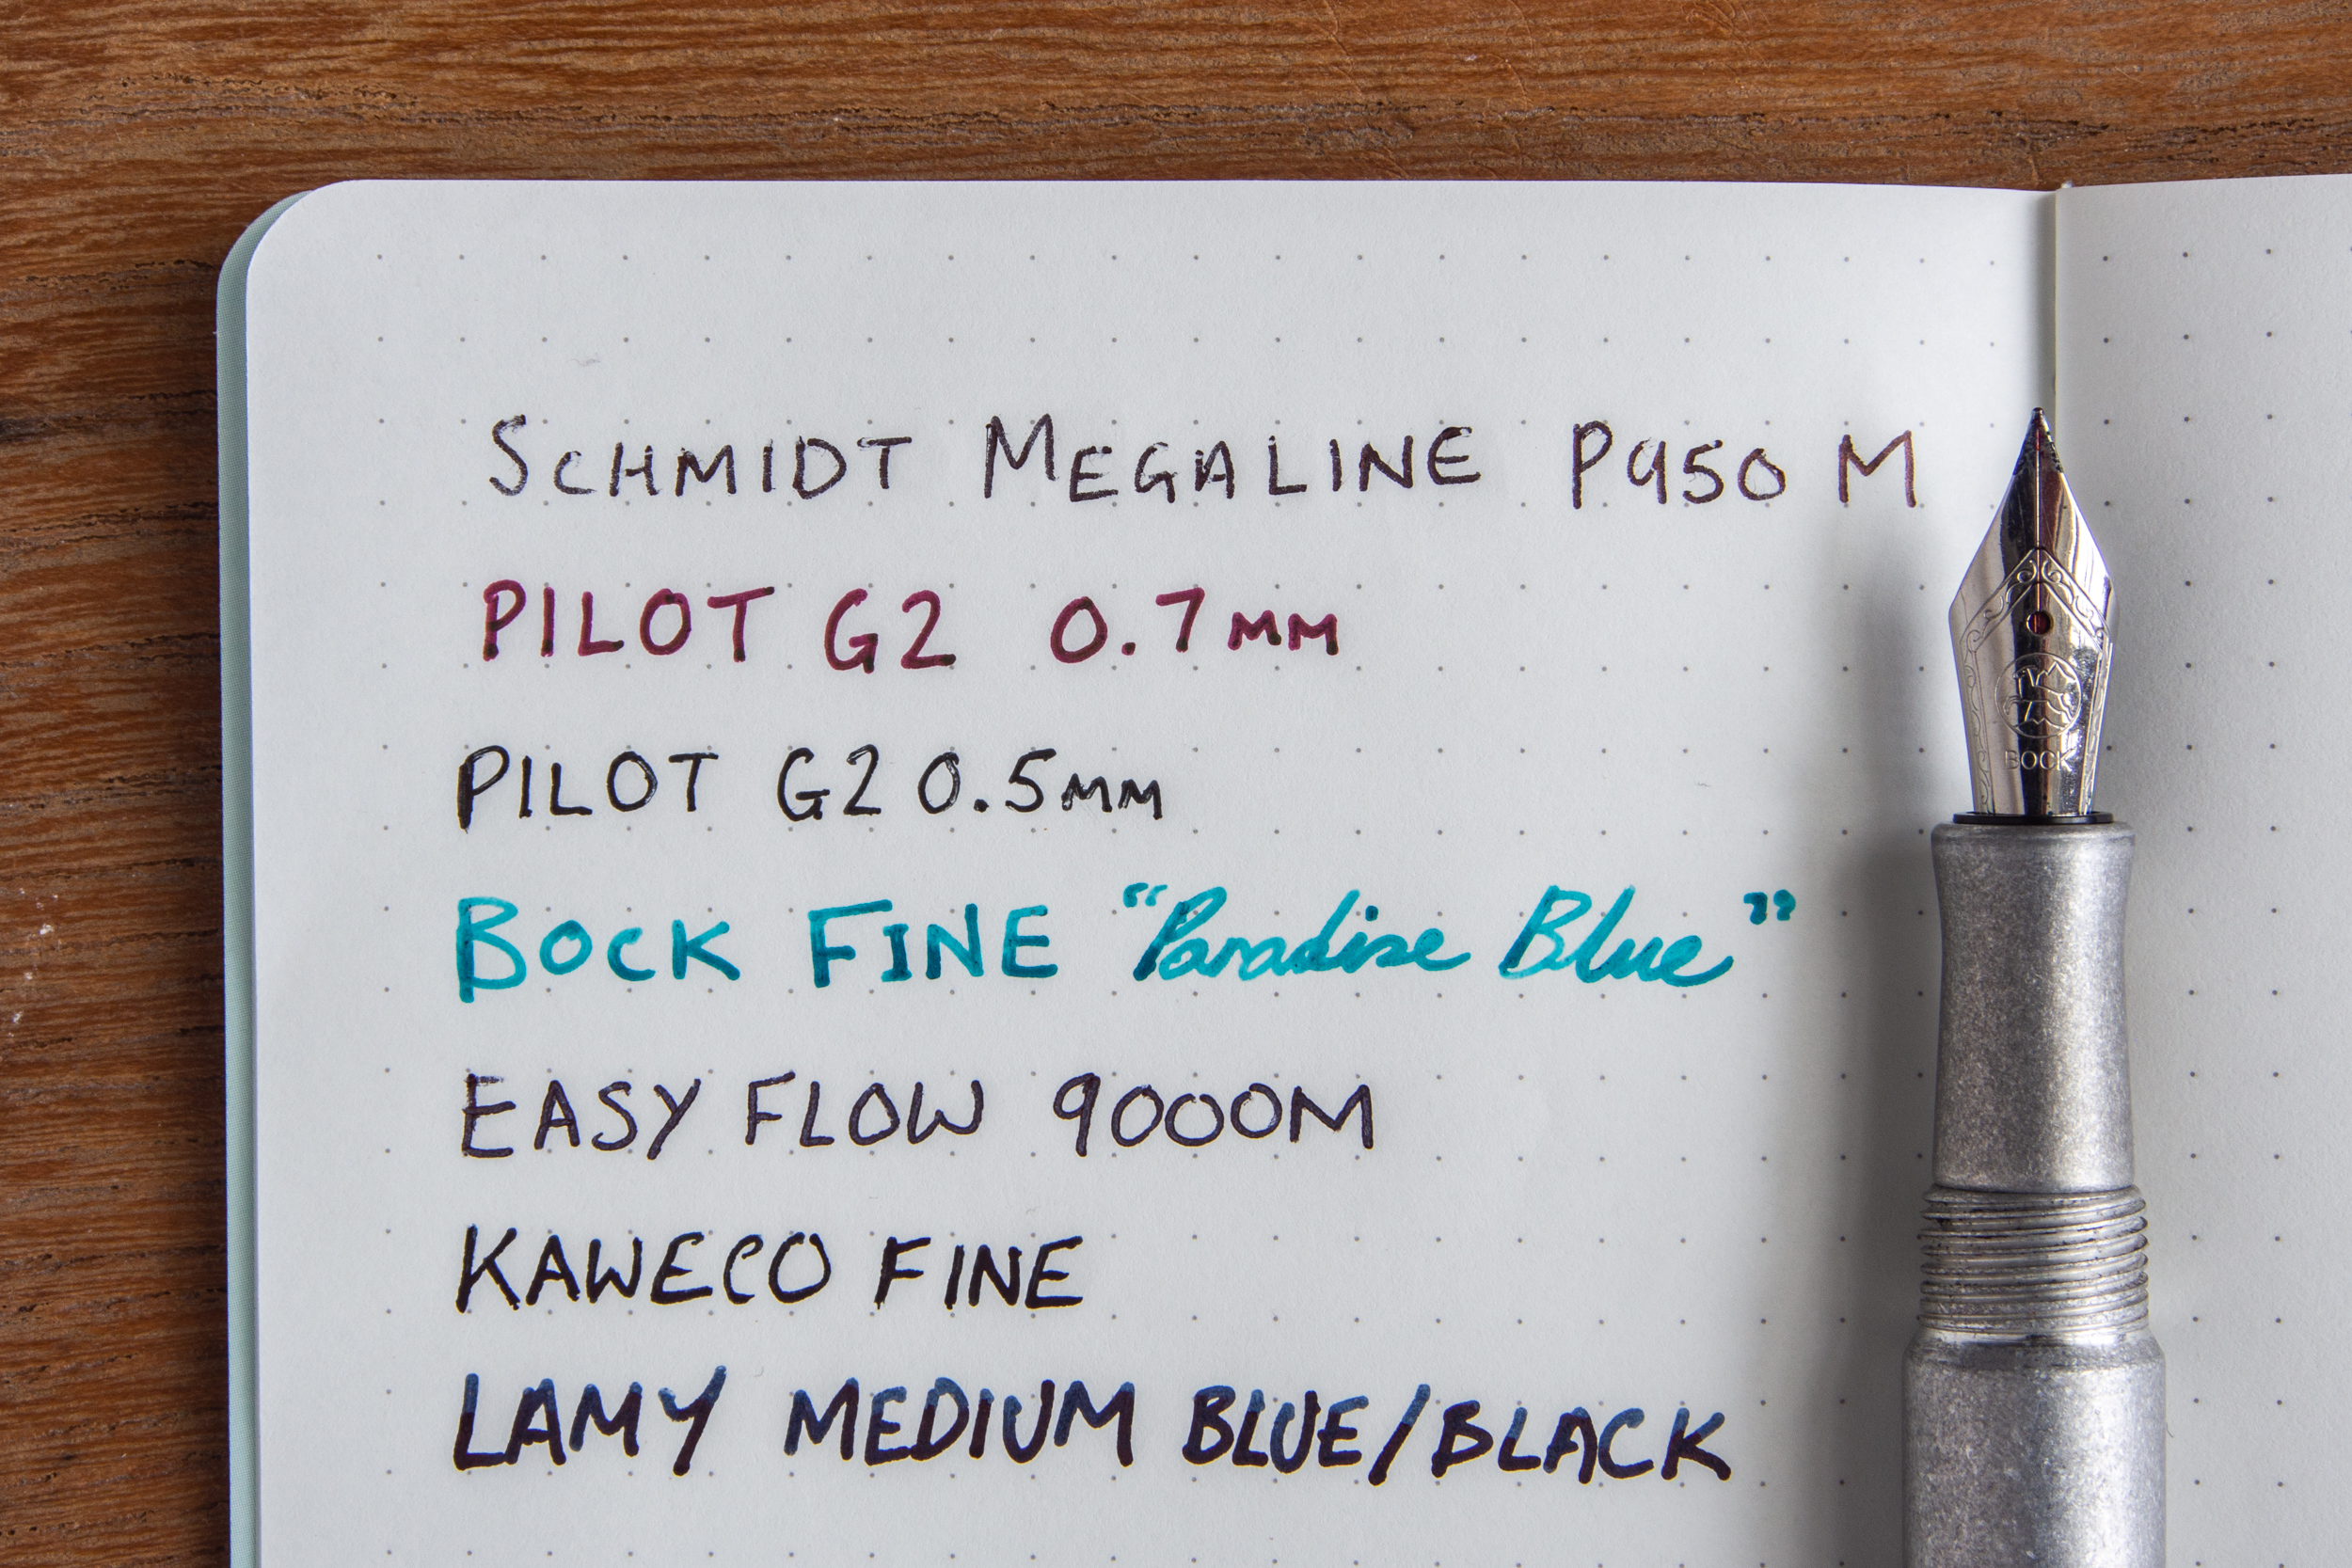 SCHMIDT MEGALINE P950 M
PILOT G2 0.7MM
PILOT G2 0.5MM
BOCK FINE “Paradise Blue”
EASY FLOW 9000M
KAWECO FINE
LAMY MEDIUM BLUE/BLACK
BOCK